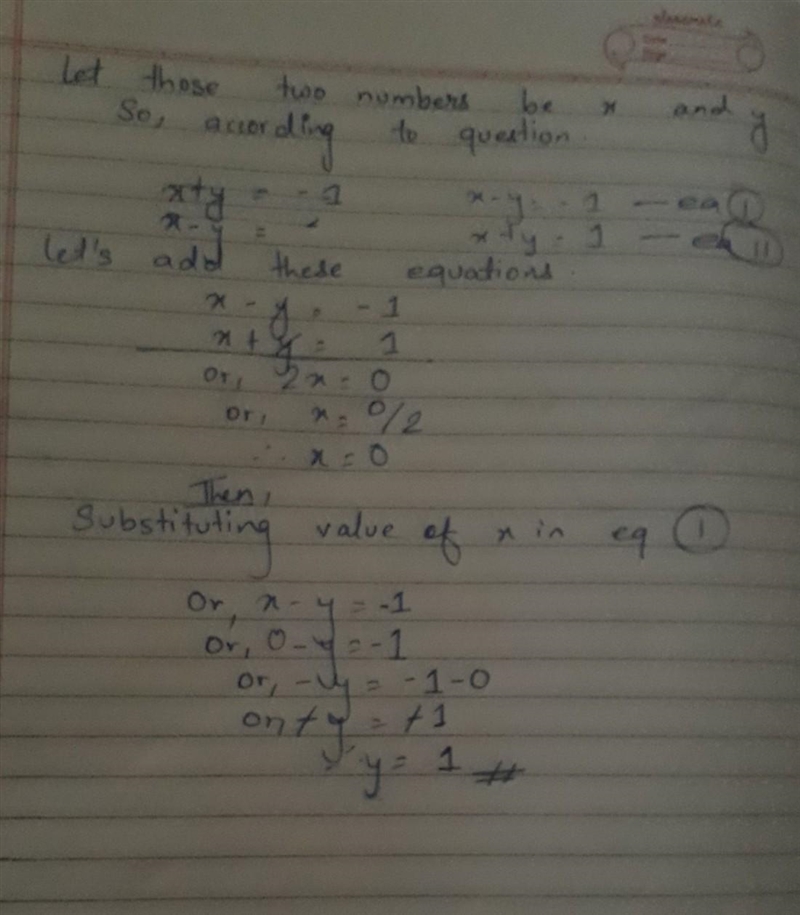 classmate
Let those two numbers be x and y
So, according to question.
x+y = -1 x-y = -1 — eq (I)
x-y = x+y = 1 — eq (II)
Let's add these equations.
x - y = -1
x + y = 1
or, 2x = 0
or, x = 0/2
∴ x = 0
Then,
Substituting value of x in eq (1)
Or, x - y = -1
or, 0 - y = -1
or, -y = -1-0
or, + y = +1
y = 1 #